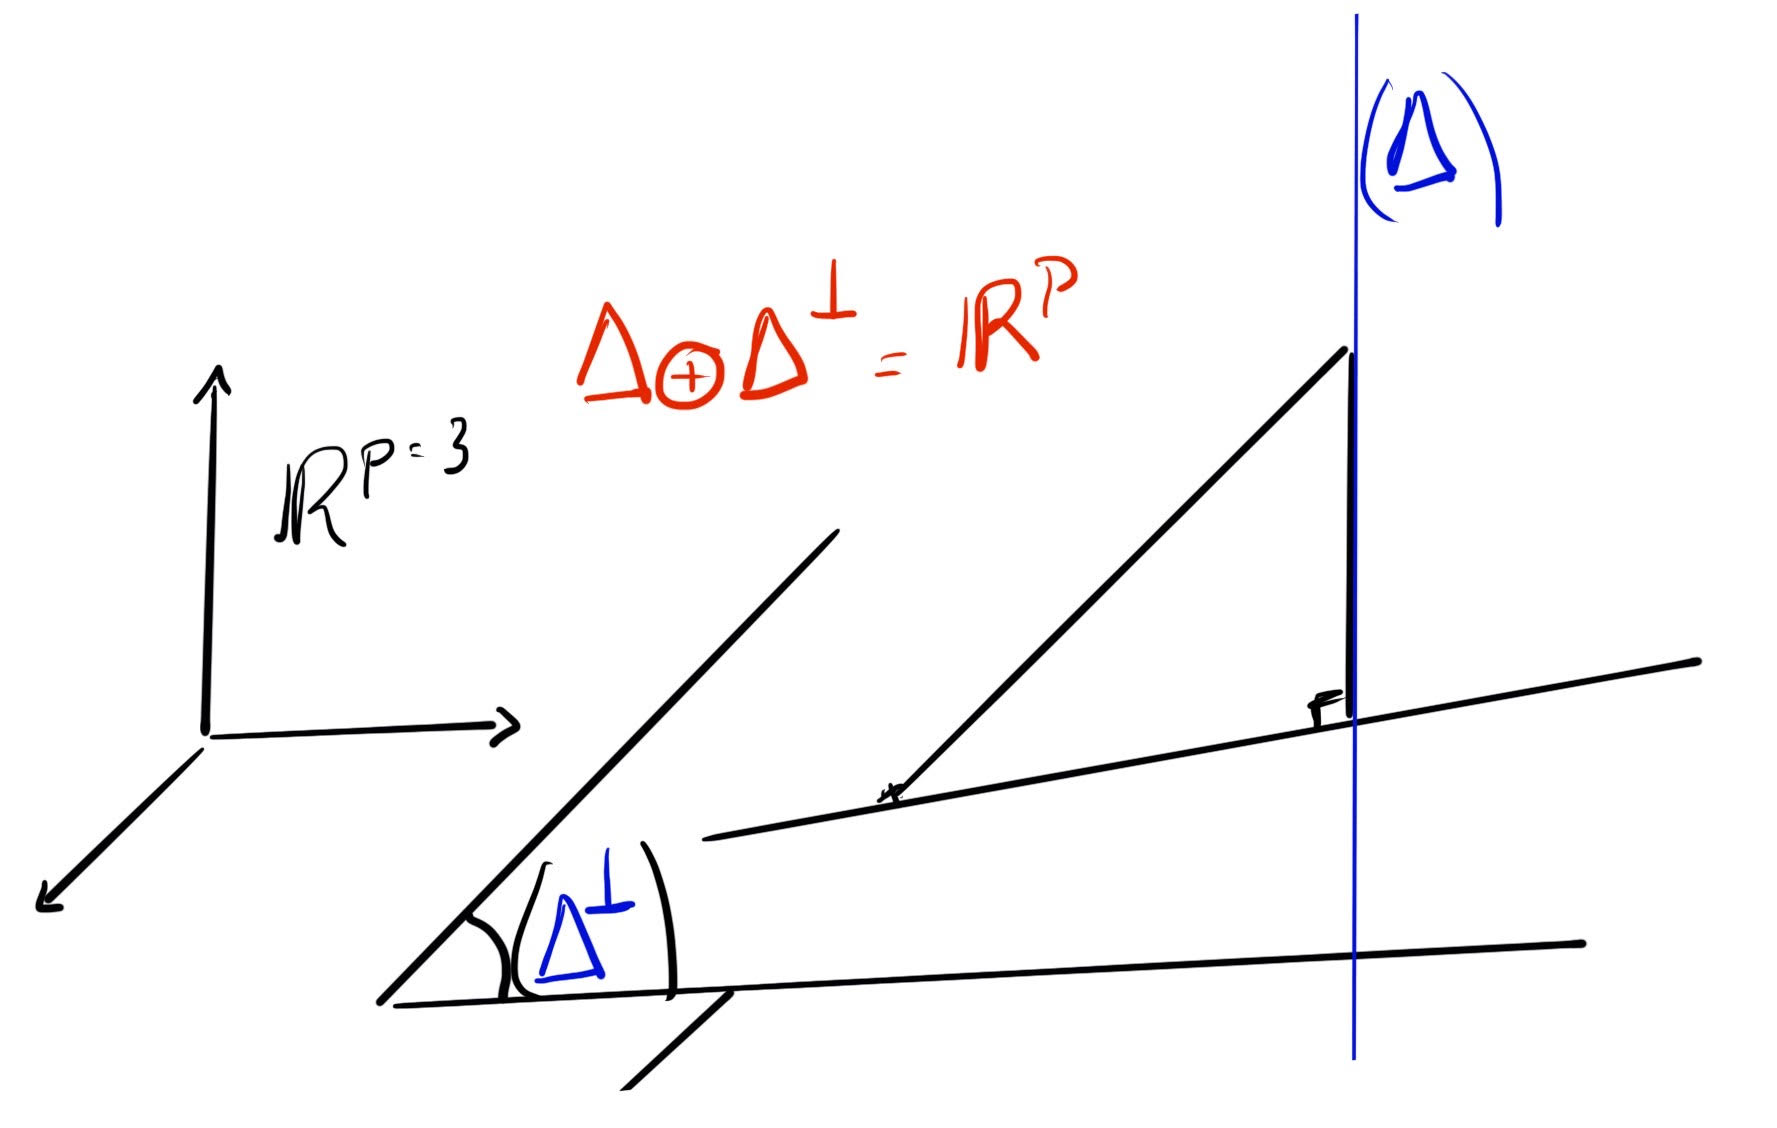 (Δ)
Δ ⊕ Δ^⊥ = ℝ^P
ℝ^P=3
(Δ^⊥)